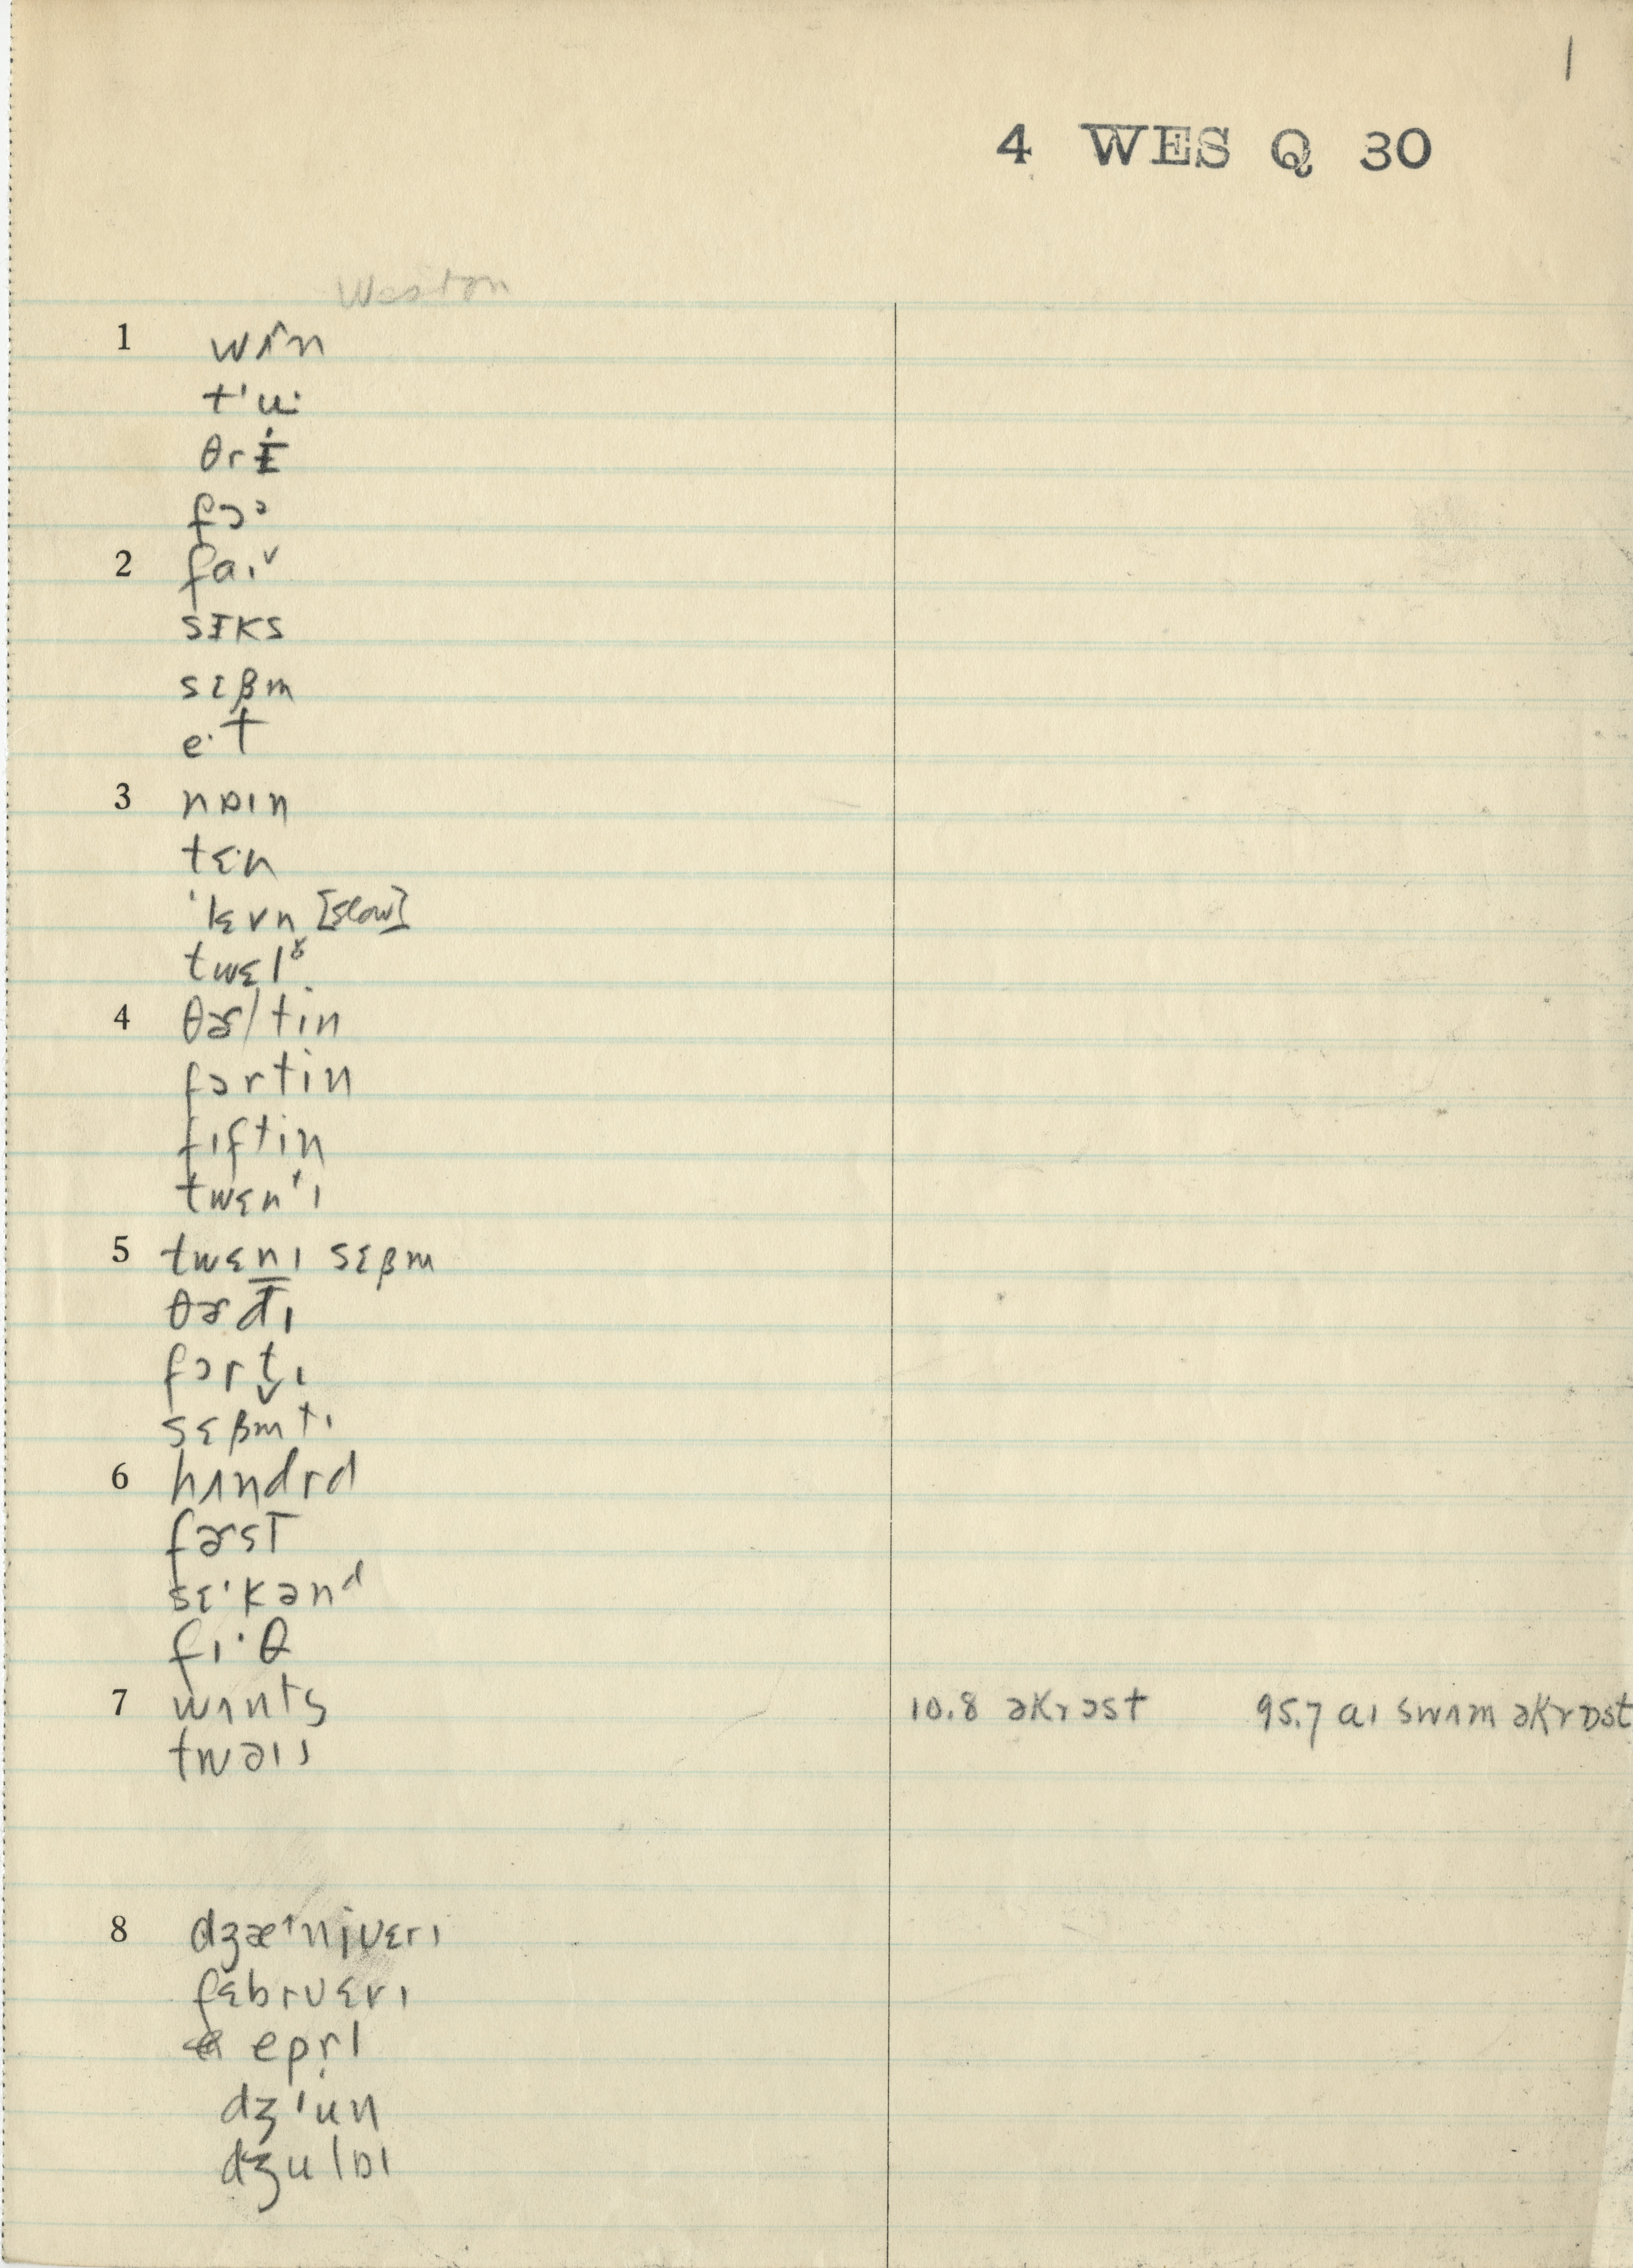 1
4 WES Q 30
Weston
1 wʌ̂n
tʹu·
θrɨ̇
fɔᵓ
2 faɪᵛ
sɪks
sɛβm
e·t
3 nɒɪn
tɛ·n
ˈlɛvn [slow]
twɛlᵝ
4 θɚ/tin
fɔrtin
fɪftin
twɛnᵗɪ
5 twɛnɪ sɛβm
θɚdɪ
fɔrt̬ɪ
sɛβmtɪ
6 hʌndrd
fɚst
sɛ·kənᵈ
fɪ·θ
7 wʌnts 10.8 əkrɔst 95.7 aɪ swʌm əkrɒst
twəɪs
8 dʒæ↑njʊɛrɪ
fɛbrʊɛrɪ
epr̩l
dʒʹun
dʒulɒɪ